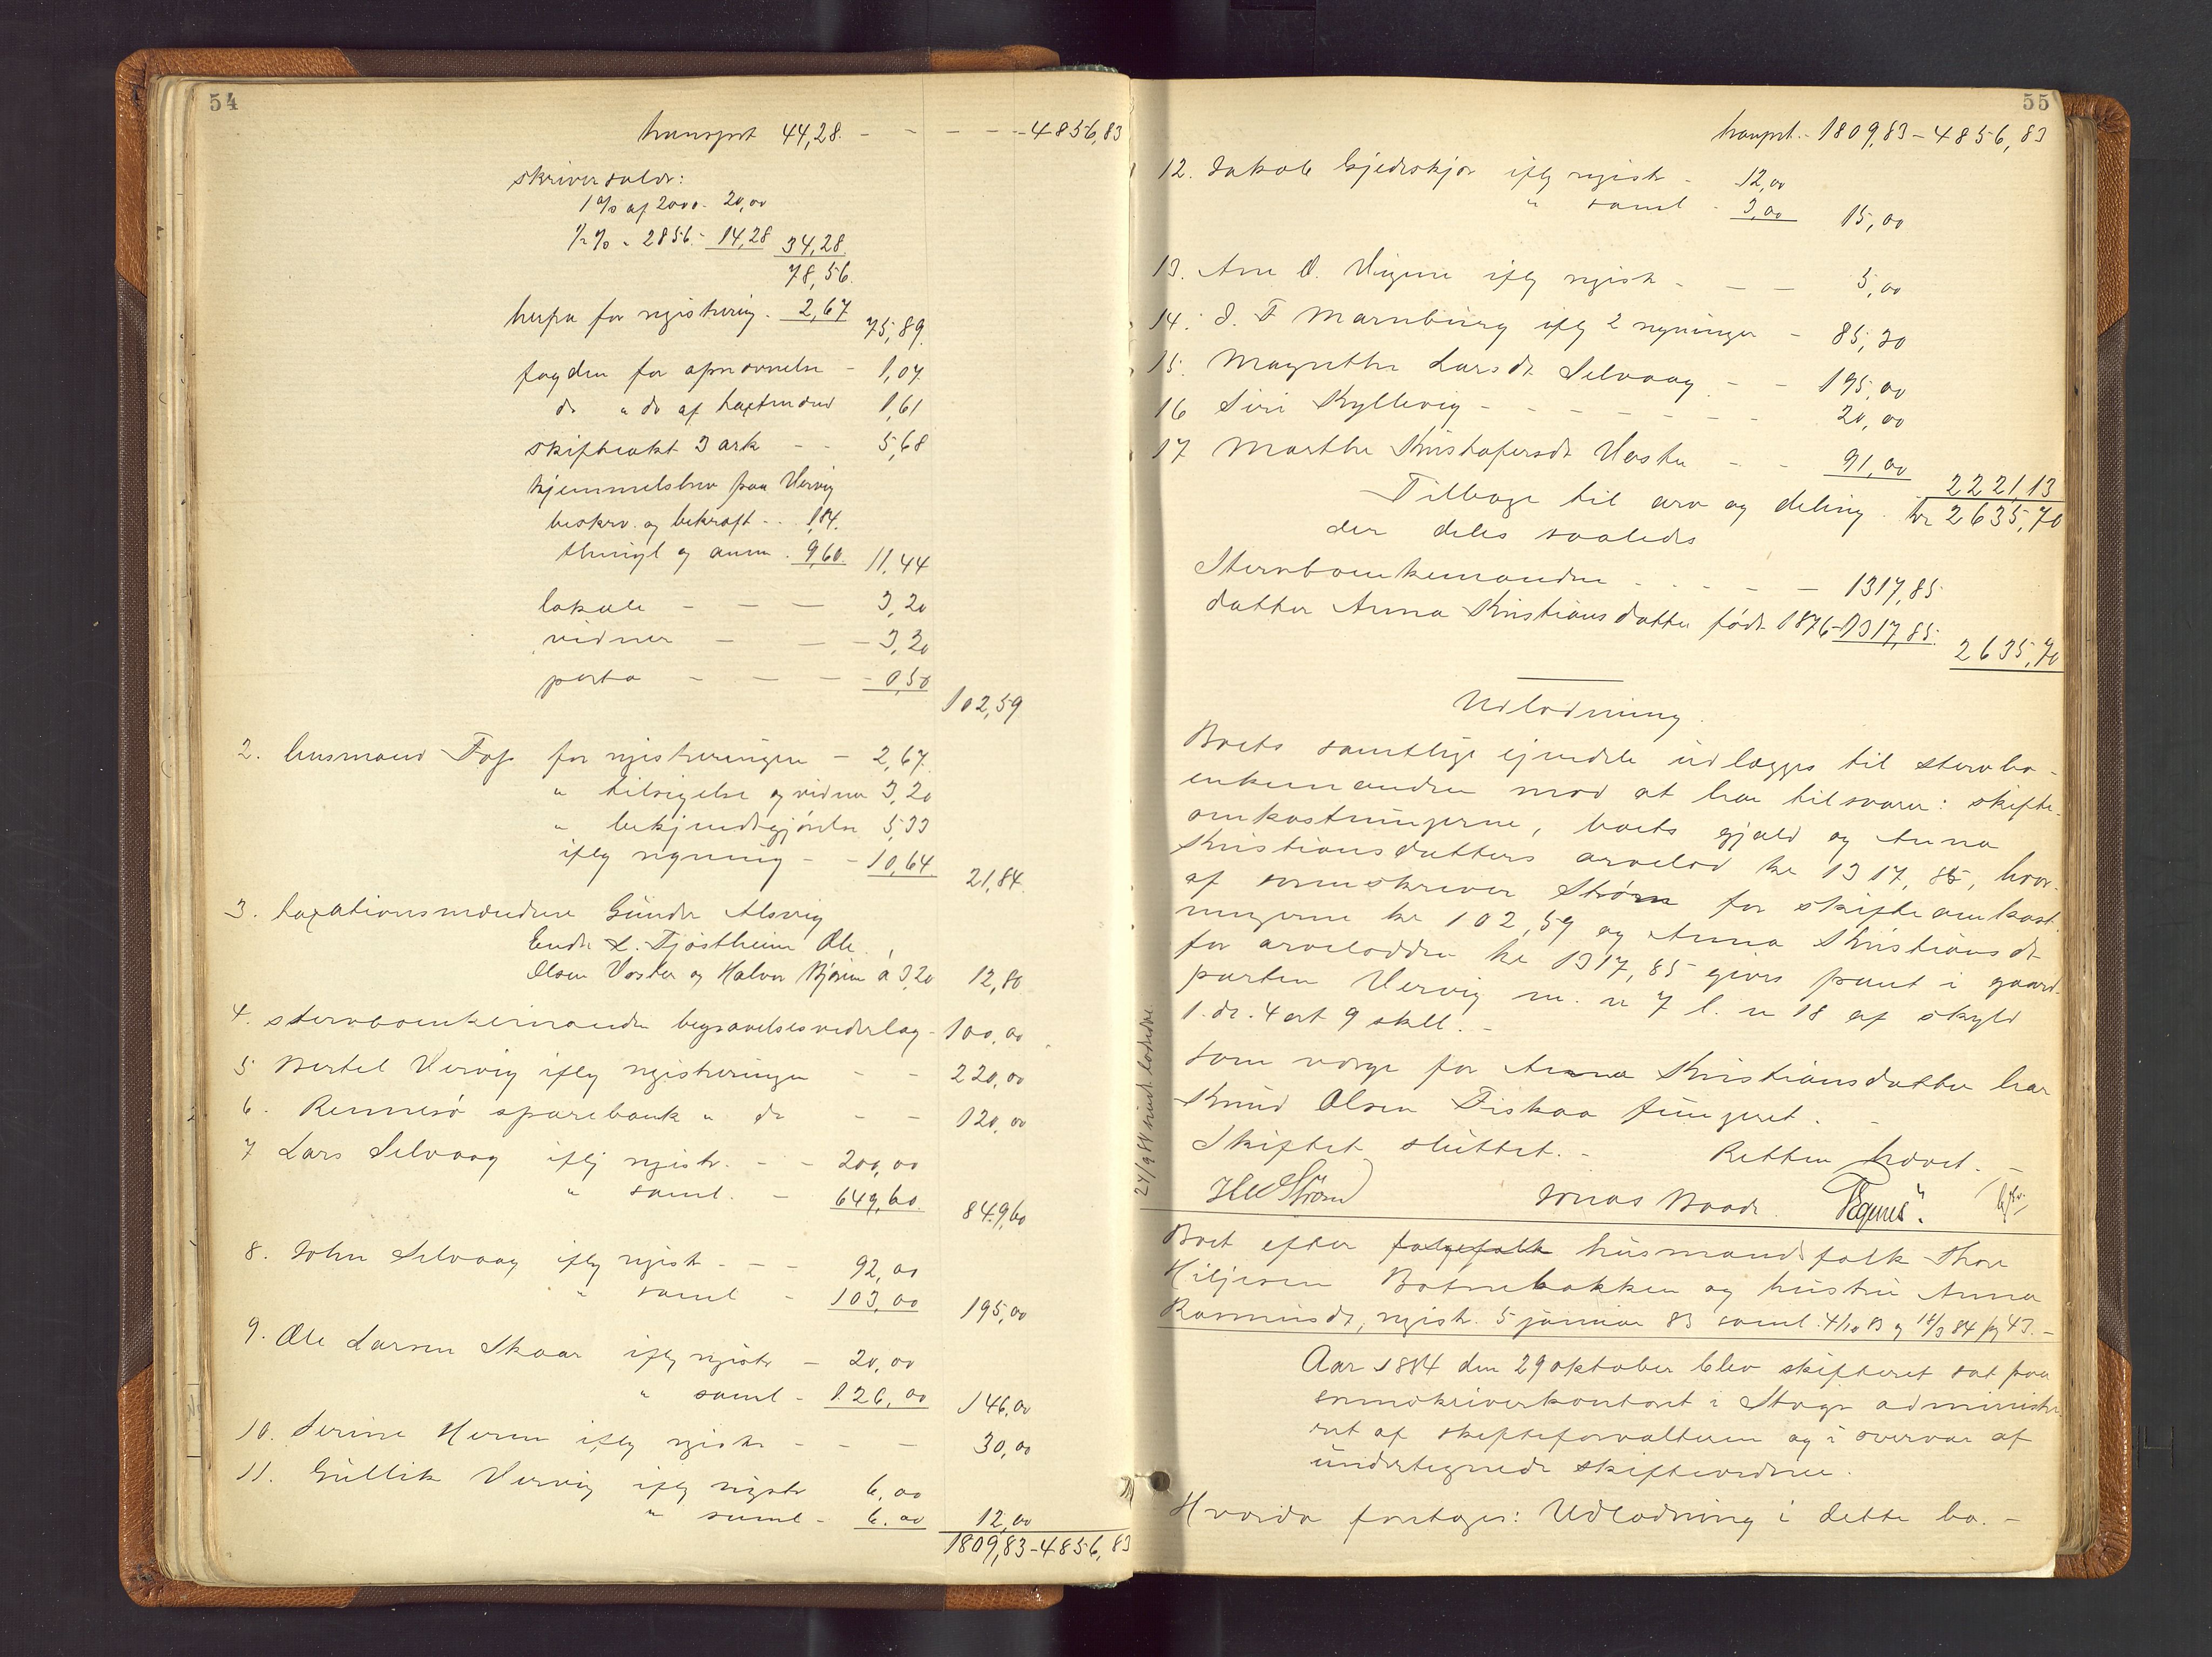 54
transport 44,28. - - - - - 4856,83
skriversalær:
1 % af 2000. 20,00
½ % " 2856 - 14,28 34,28
78,56
herfra for registrering. 2,67
75,89
fogden for opnævnelse - 1,07
do " do af taxtmænd 1,61
skifteakt 3 ark - - 5,68
hjemmelsbrev paa Vervig
beskrv. og bekræft - . 1,84.
thingl og anm . 9,60. 11,44
lokale - - - 3,20
vidner - - - 3,20
porto - - - - 0,50
102,59
2. lensmand for registreringen - 2,67.
" tilsigelse og vidner 3,20
" bekjendtgjørelse 5,33
iflg regning - - 10,64
21,84.
3. taxationsmændene Gunder Alsvig
Endr L. Tjøstheim Ole
Olsen Voster og Halvor à 3,20 12,80
4. stervboenkemanden begravelsesvederlag - 100,00
5 Bertel Vervig iflg registreringen - - 220,00
6. Rennesø sparebank " do - - 120,00
7 Lars Selvaag iflg registr. - - 200,00
" saml. - 649,60. 849,60
8. John Selvaag iflg registr - - - 92,00
" saml - 103,00 195,00
9. Ole Larsen Skaar iflg registr - 20,00
" saml - 126,00 146,00
10. Serine iflg registr - - - 30,00
11. Gullik Vervig iflg registr 6,00
" saml - 6.00 12,00
1809,83-4856,83
55
transprt. - 1809,83 - 4856,83
12. Jakob iflg registr - 12,00
" saml - 3,00 15,00
13. Ane O. iflg registr - - - 5,00
14. J. F Marnburg iflg 2 regninger - 85,30
15. Magrethe Larsdt Selvaag - - 195,00
16 Siri Kyllevig - - - - - - - 20,00
17 Marthe Kristofersdt Voster - - 91,00 2221,13
Tilbage til arv og deling. kr 2635,70
der deles saaledes
Stervboenkemanden - - - - - 1317,85
datter Anna Kristiansdatter født 1876 - 1317,85.
2635,70
Udlodning.
Boets samtlige ejendele udlægges til stervbo-
enkemanden mod at han tilsvarer: skifte-
omkostningerne, boets gjæld og Anna
Kristiansdatters arvelod kr 1317,85, hvor-
af sorenskriver Strøm for skifteomkost-
ningerne kr 102,59 og Anna Kristiansdt
for arvelodden kr 1317,85 gives pant i gaard-
parten Vervig m. n 7 l. n 18 af skyld
1. dr. 4 ort 9 skll. -
som verge for Anna Kristiansdatter har
Knud Olsen Fiskaa fungeret. -
Skiftet sluttet. - Retten hævet. -
Strøm Jonas Baade
24/9 84 indt. lodseddel
Boet efter folgefolk husmandsfolk Thore
Hiljesen Botnebakken og hustru Anna
Rasmusdt, registr. 5 januar 83 saml. 4/10 83 og 18/3 84 pg 43. -
Aar 1884 den 29 oktober blev skifteret sat paa
sorenskriverkontoret i Stage administre-
ret af skifteforvalteren og i overvær af
undertegnede skiftevidner.
Hvorda foretages: Udlodning i dette bo. -